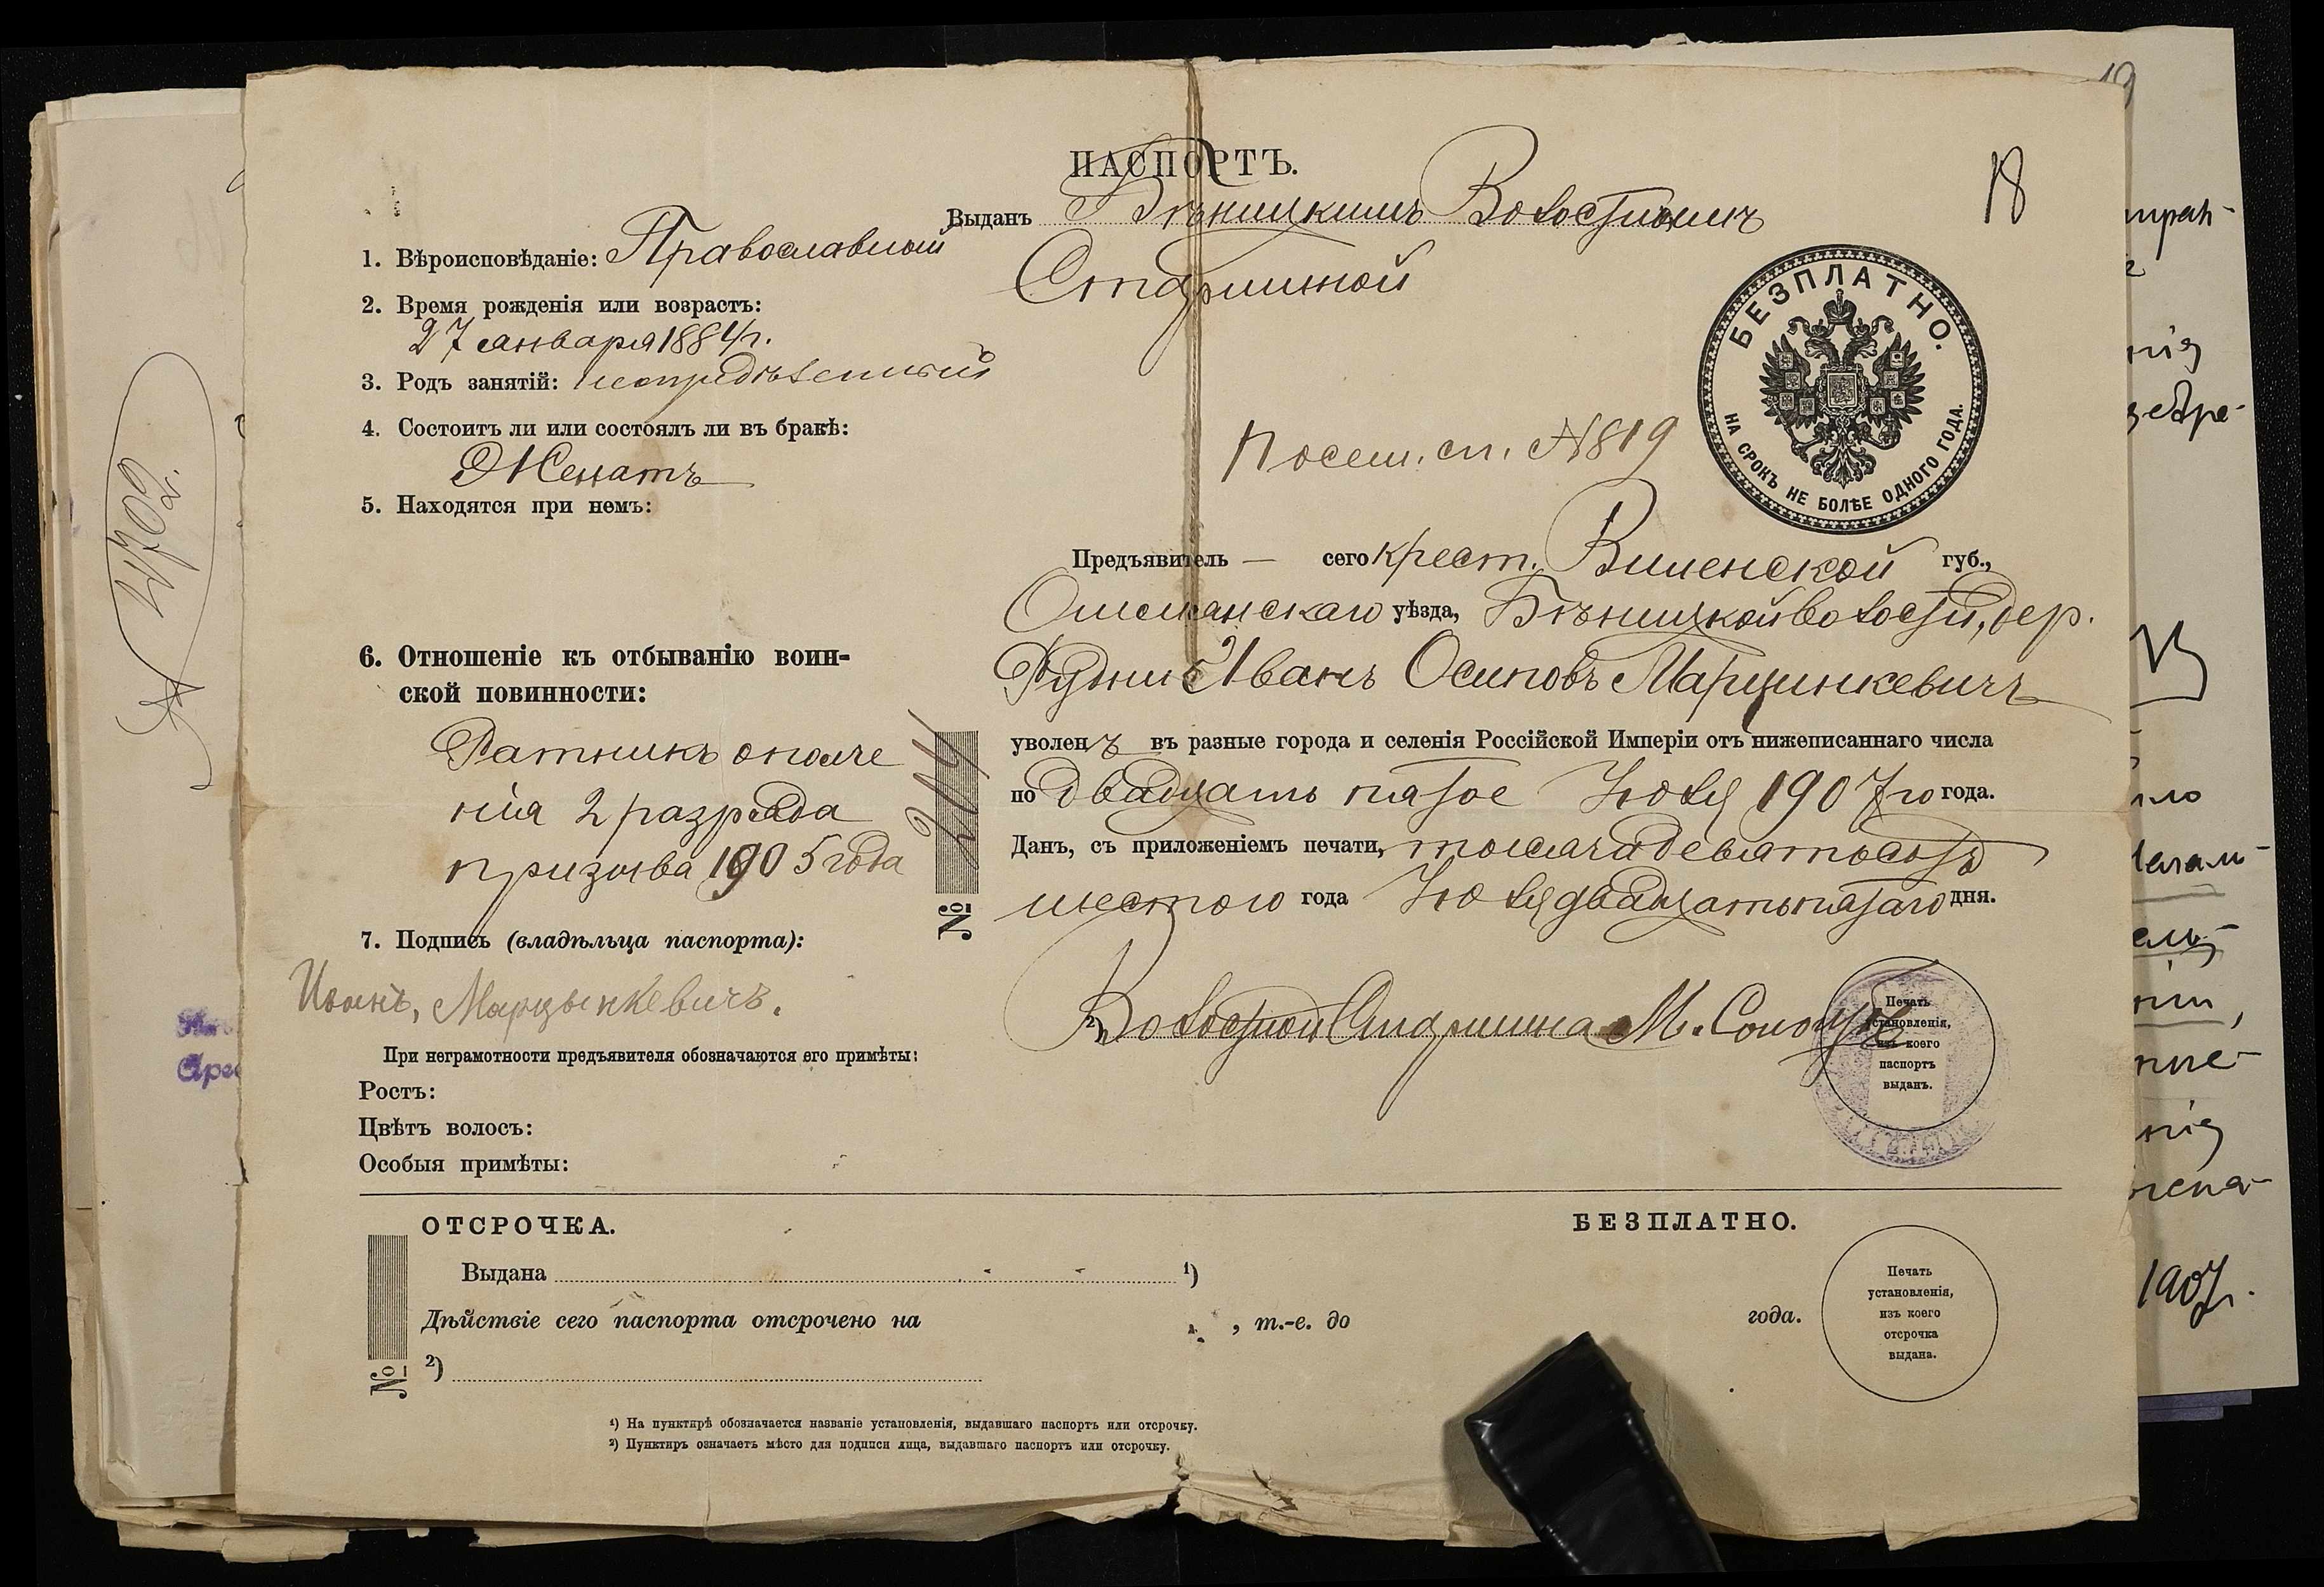 18
ПАСПОРТЪ.
Выданъ Бѣницкимъ Волостнымъ
Старшиной
1. Вѣроисповѣданіе: Православный
2. Время рожденія или возрастъ:
27 января 1884 г.
3. Родъ занятій: неопредѣленный
4. Состоитъ ли или состоялъ ли въ бракѣ:
Женатъ
5. Находятся при немъ:
6. Отношеніе къ отбыванію воин-
ской повинности:
Ратникъ ополче
нія 2 разряда
призыва 1905 года
7. Подпись (владѣльца паспорта):
Иванъ, Марцынкевичъ.
При неграмотности предъявителя обозначаются его примѣты:
Ростъ:
Цвѣтъ волосъ:
Особыя примѣты:
БЕЗПЛАТНО.
НА СРОКЪ НЕ БОЛѢЕ ОДНОГО ГОДА.
Посем. сп. № 819
Предъявитель — сего крест. Виленской губ.,
Ошмянскаго уѣзда, Бѣницкой волости, дер.
Рудни Иванъ Осиповъ Марцинкевичъ
уволенъ въ разные города и селенія Россійской Имперіи отъ нижеписаннаго числа
по двадцать пятое Іюля 1907 го года.
Данъ, съ приложеніемъ печати, тысяча девятьсотъ
шестого года Іюля двадцать пятаго дня.
№
2) Волостной Старшина М.
Печать
установленія,
изъ коего
паспортъ
выданъ.
ОТСРОЧКА.
БЕЗПЛАТНО.
Выдана 1)
Дѣйствіе сего паспорта отсрочено на , т.-е. до года.
№ 2)
Печать
установленія,
изъ коего
отсрочка
выдана.
1) На пунктирѣ обозначается названіе установленія, выдавшаго паспортъ или отсрочку.
2) Пунктиръ означаетъ мѣсто для подписи лица, выдавшаго паспортъ или отсрочку.
19
1907 г.